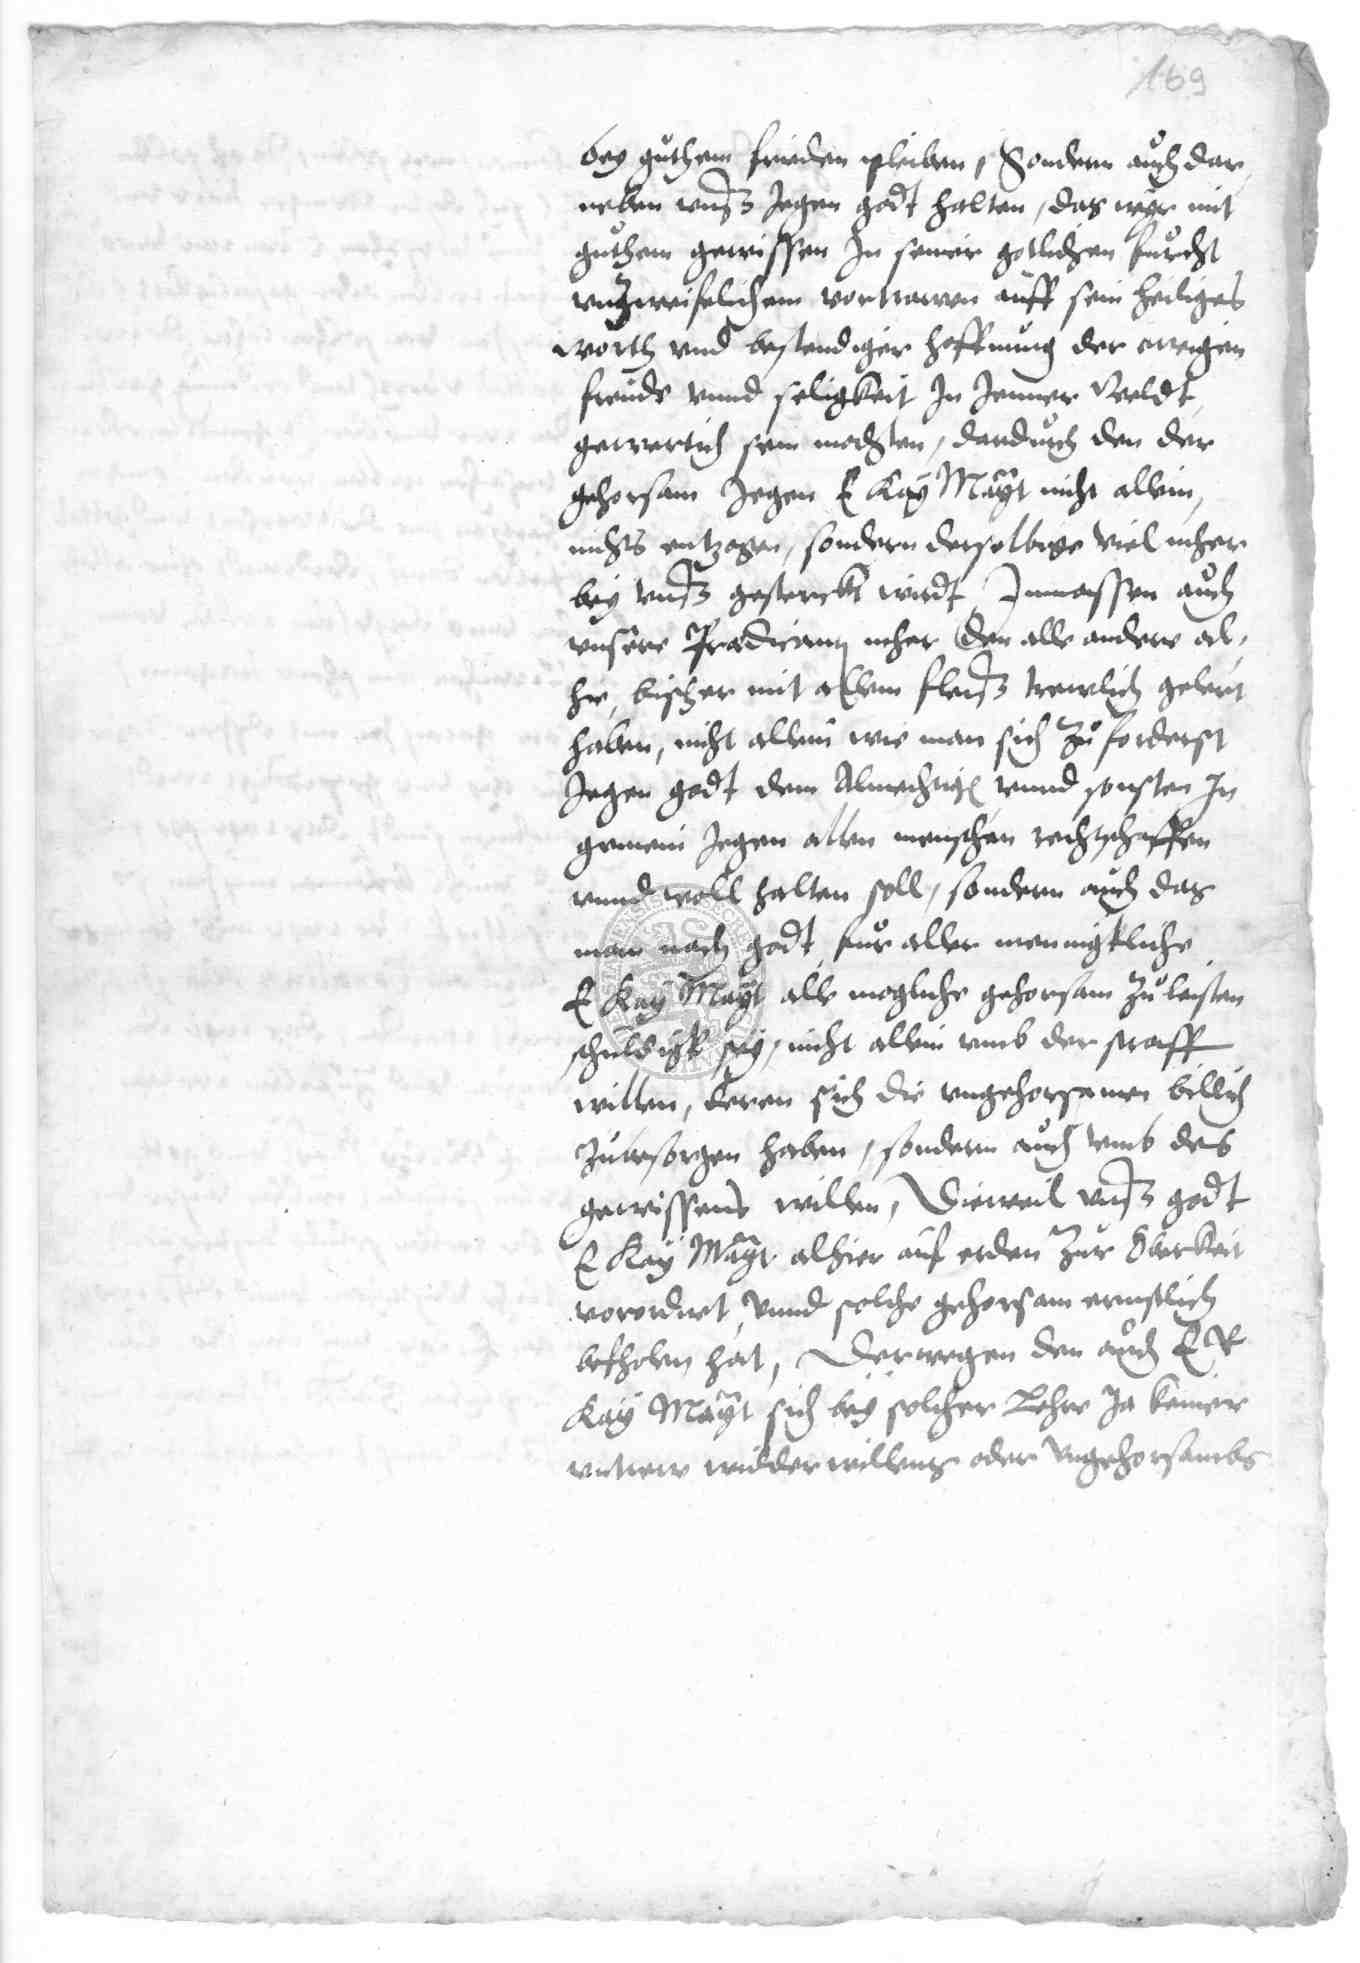 169
bey guthem frieden pleiben, Sondern auch dar
neben unsz Jegen godt halten, das wyr mit
guthem gewissen In seiner gotlichen furcht
unzweifelichem vortrawen auff sein heiliges
worth und bestendiger hoffnung der ewigen
freude unnd seligkeit In Jenner Weldt
gewertich sein mochten, dardurch den der
gehorsam Jegen E Kay Mayt nicht allein,
nichts entzogen, sondern derselbige viel meher
bey unsz gesterckt wirdt, Inmassen auch
unsere Prædicanten meher den alle andere al,
hie, bischer mit allem fleisz trewlich gelert
haben, nicht allein wie man sich zu forderst
Jegen godt dem Almechtigen unnd sonsten In
gemein Jegen allen menschen rechtschaffen
unnd woll halten soll, sondern auch das
man nach godt, fur aller mennigkliche
E Kay Mayt alle mogliche gehorsam zu leisten
schuldigk sey, nicht allein umb der straff
willen, deren sich die ungehorsamen billich
zubesorgen haben, sondern auch umb des
gewissens willen, Dieweil unsz godt
E Kay Mayt alhier auf erden zur Oberkeit
vorordnet, unnd solche gehorsam ernstlich
befholen hat, Derwegen den auch E R
Kay Mayt sich bey solcher Lehre Ja keiner
untrew widderwillens oder ungehorsambs